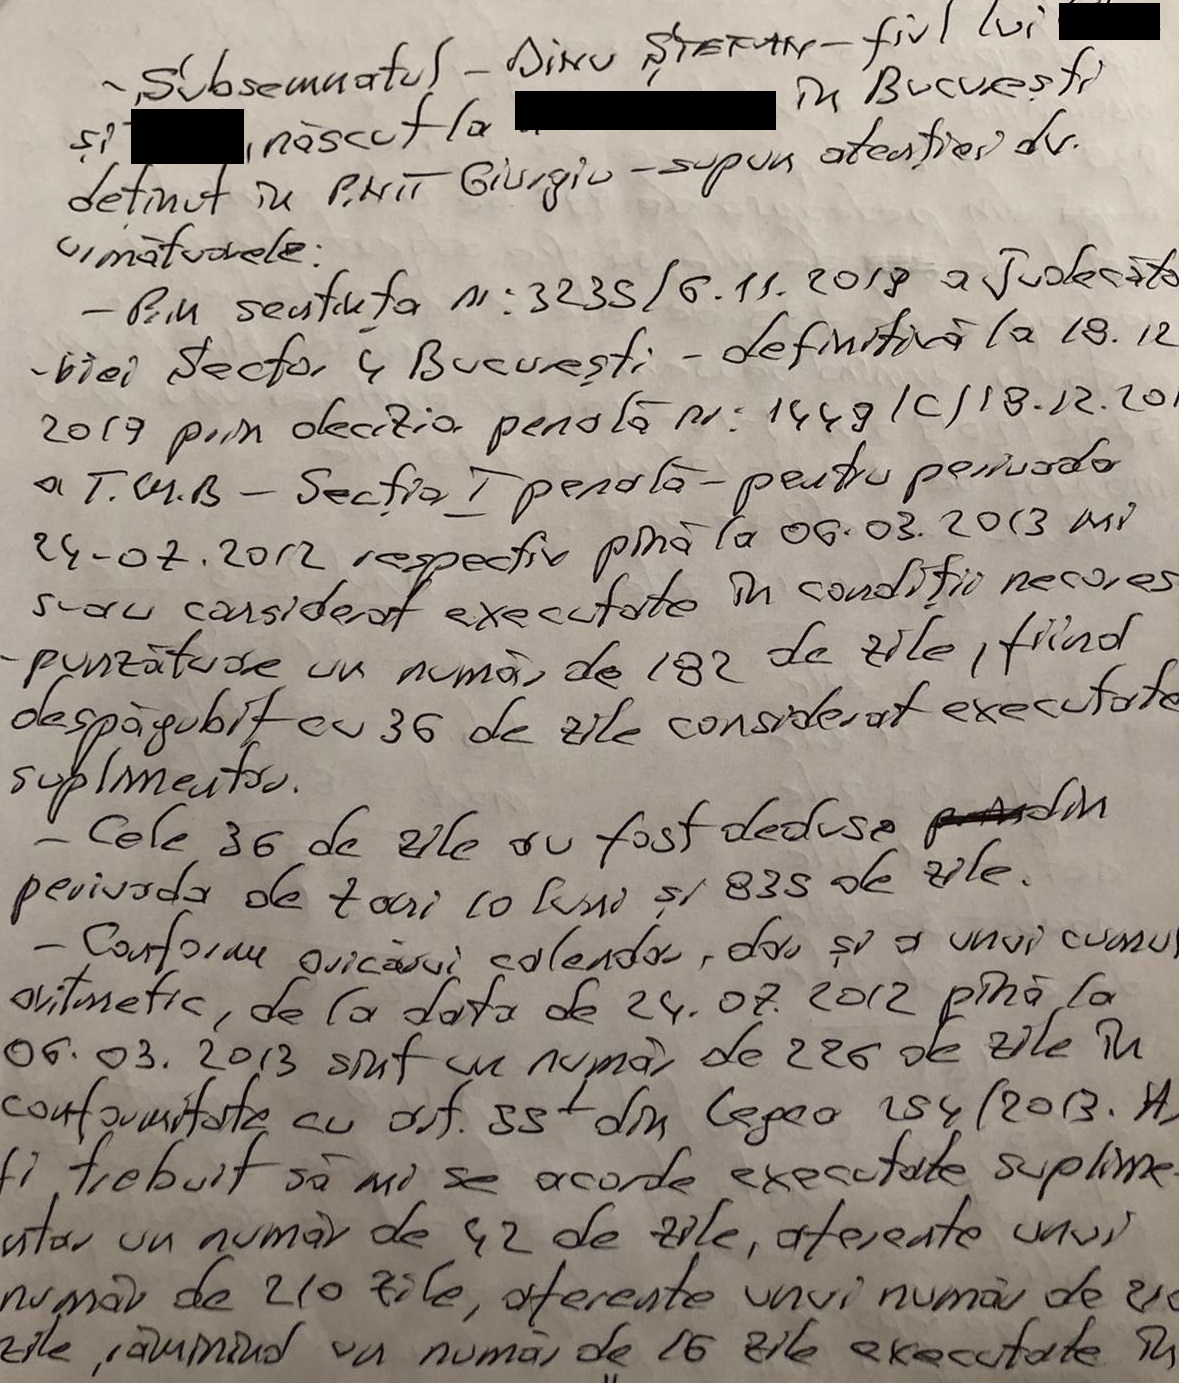 - Subsemnatul - Dinu ȘTEFAN - fiul lui
și , născut la în București
deținut în P.N.T Giurgiu - supun atenției dv.
următoarele:
- Prin sentința nr: 3235/6.11.2019 a Judecăto
-riei Sector 4 București - definitivă la 18.12
2019 prin decizia penală nr: 1449/C/18.12.201
a T.M.B - Secția I penală - pentru perioada
24-07.2012 respectiv pînă la 06.03.2013 mi
s-au considerat executate în condiții necores
-punzătoare un număr de 182 de zile, fiind
despăgubit cu 36 de zile considerat executate
suplimentar.
- Cele 36 de zile au fost deduse din
perioada de 7 ani 10 luni și 835 de zile.
- Conform oricărui calendar, dar și a unui cumul
aritmetic, de la data de 24.07.2012 pînă la
06.03.2013 sînt un număr de 226 de zile în
conformitate cu art. 55¹ din Legea 254/2013. A,
fi trebuit să mi se acorde executate suplime-
ntar un număr de 42 de zile, aferente unui
număr de 210 zile, aferente unui număr de 210
zile, rămînînd un număr de 16 zile executate în